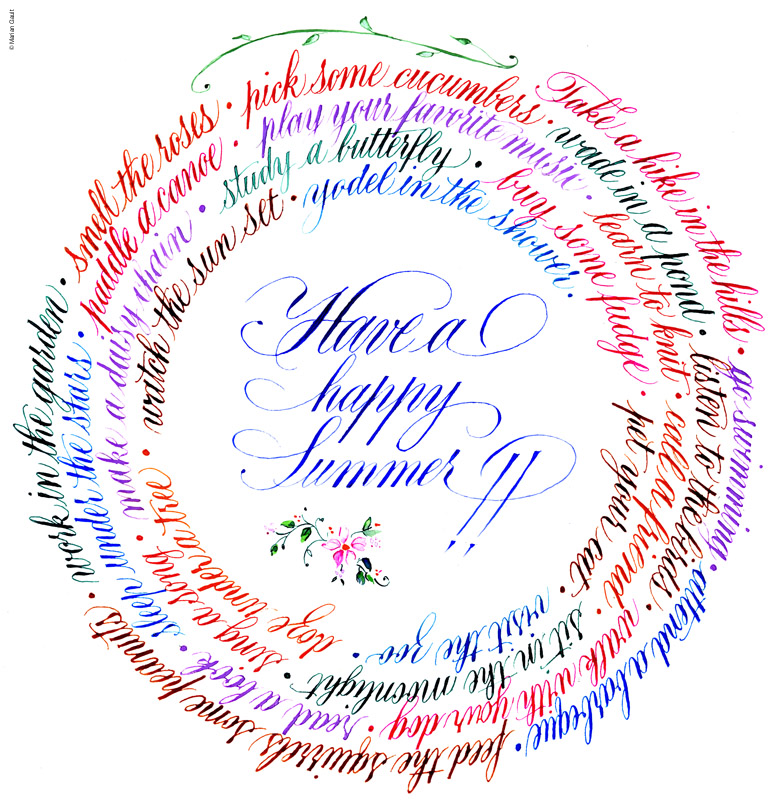 © Marian Gault
Take a hike in the hills •
go swimming •
attend a barbeque •
feed the squirrels some peanuts •
work in the garden •
smell the roses •
pick some cucumbers •
wade in a pond •
listen to the birds •
walk with your dog •
read a book •
sleep under the stars •
paddle a canoe •
play your favorite music •
learn to knit •
call a friend •
sit in the moonlight •
sing a song •
make a daisy chain •
study a butterfly •
buy some fudge •
pet your cat •
visit the zoo •
doze under a tree •
watch the sun set •
yodel in the shower •
Have a
happy
Summer!!